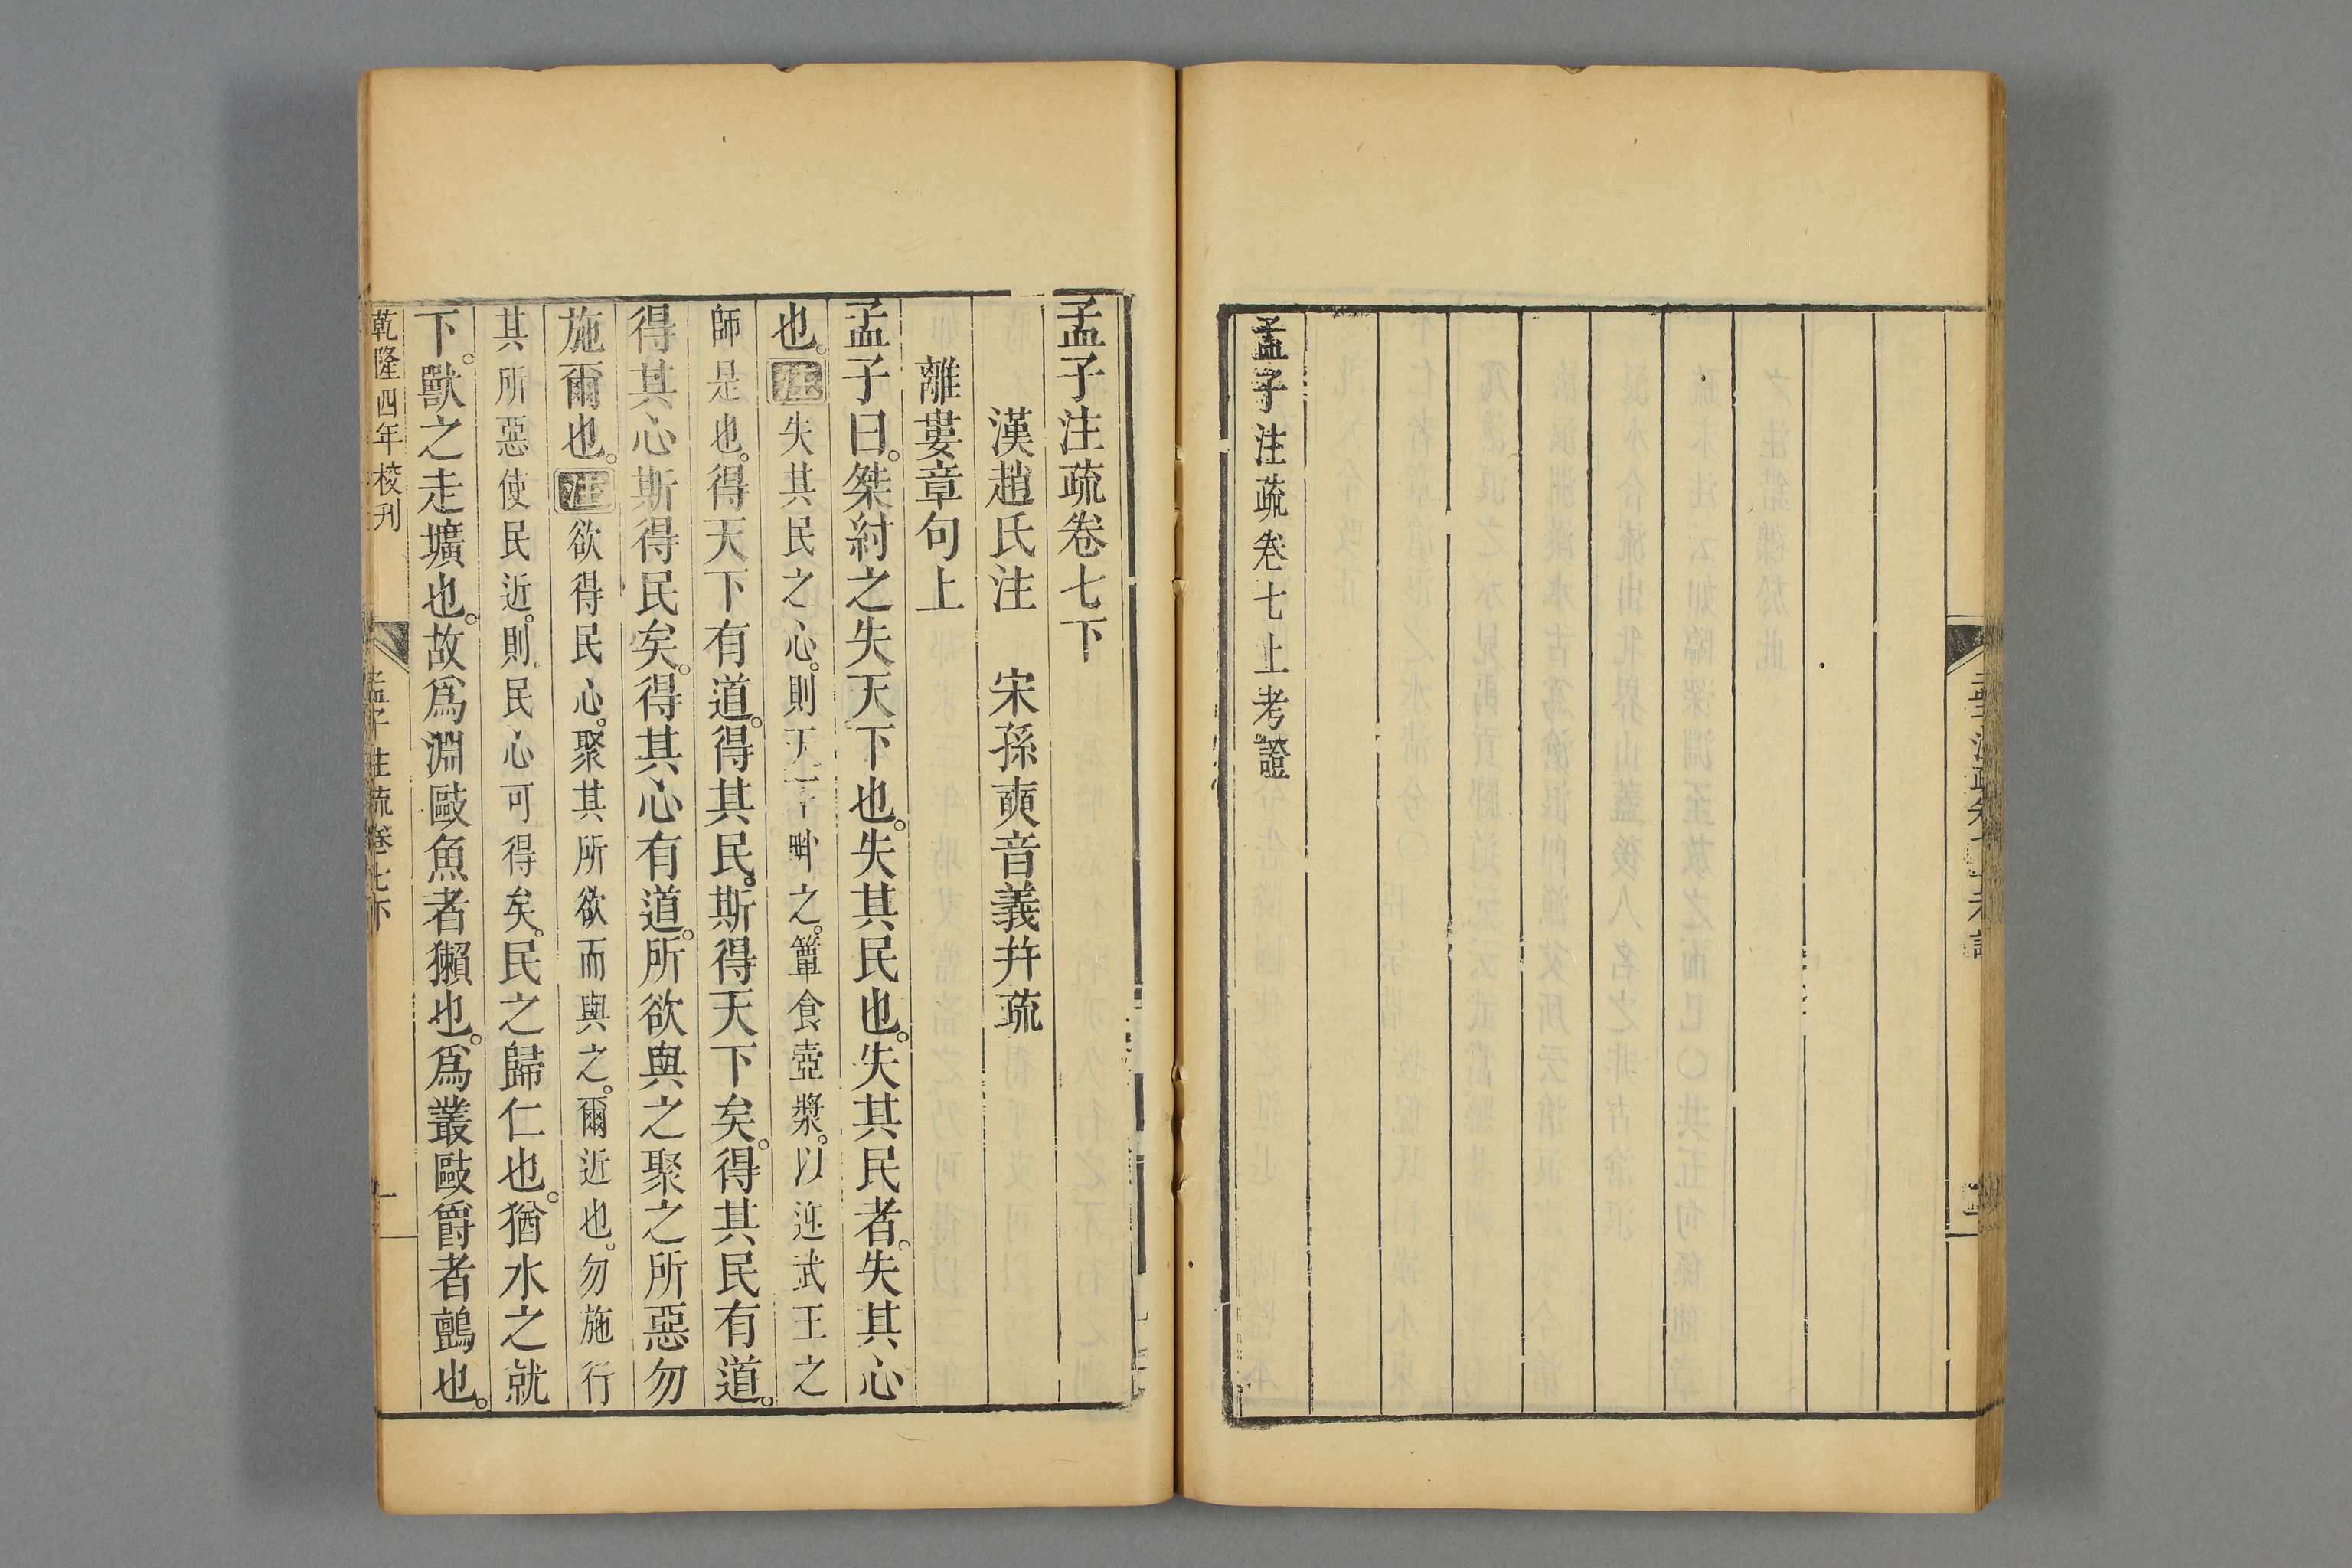 孟子注疏卷七上考證
孟子注疏卷七下
漢趙氏注　宋孫奭音義幷疏
離婁章句上
孟子曰。桀紂之失天下也。失其民也。失其民者。失其心
也。注失其民之心。則天下畔之。簞食壺漿。以迎武王之
師是也。得天下有道。得其民。斯得天下矣。得其民有道。
得其心斯得民矣。得其心有道。所欲與之聚之所惡勿
施爾也。注欲得民心。聚其所欲而與之。爾近也。勿施行
其所惡使民近。則民心可得矣。民之歸仁也。猶水之就
下。獸之走壙也。故爲淵敺魚者獺也。爲叢敺爵者鸇也。
乾隆四年校刊
孟子注疏卷七下
一